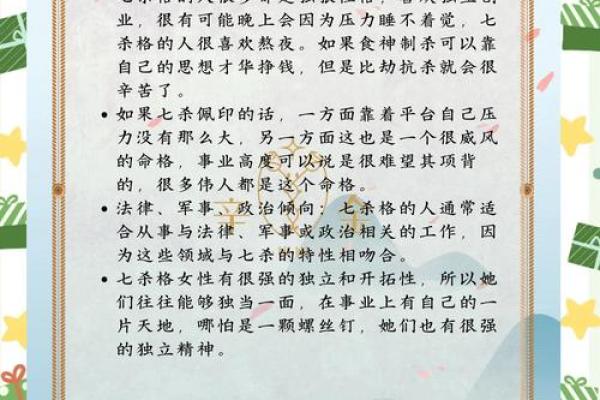 业，很有可能晚上会因为压力睡不着觉，七
杀格的人很喜欢熬夜。如果食神制杀可以靠
自己的思想才华挣钱，但是比劫抗杀就会很
辛苦了。
如果七杀佩印的话，一方面靠着平台自己压
力没有那么大，另一方面这也是一个很威风
的命格，事业高度可以说是很难望其项背
的，很多伟人都是这个命格。
法律、军事、政治倾向：七杀格的人通常适
合从事与法律、军事或政治相关的工作，因
为这些领域与七杀的特性相吻合。
七杀格女性有很强的独立和开拓性，所以她
们往往能够独当一面，在事业上有自己的一
片天地，哪怕是一颗螺丝钉，她们也有很强
的独立精神。
辛 金